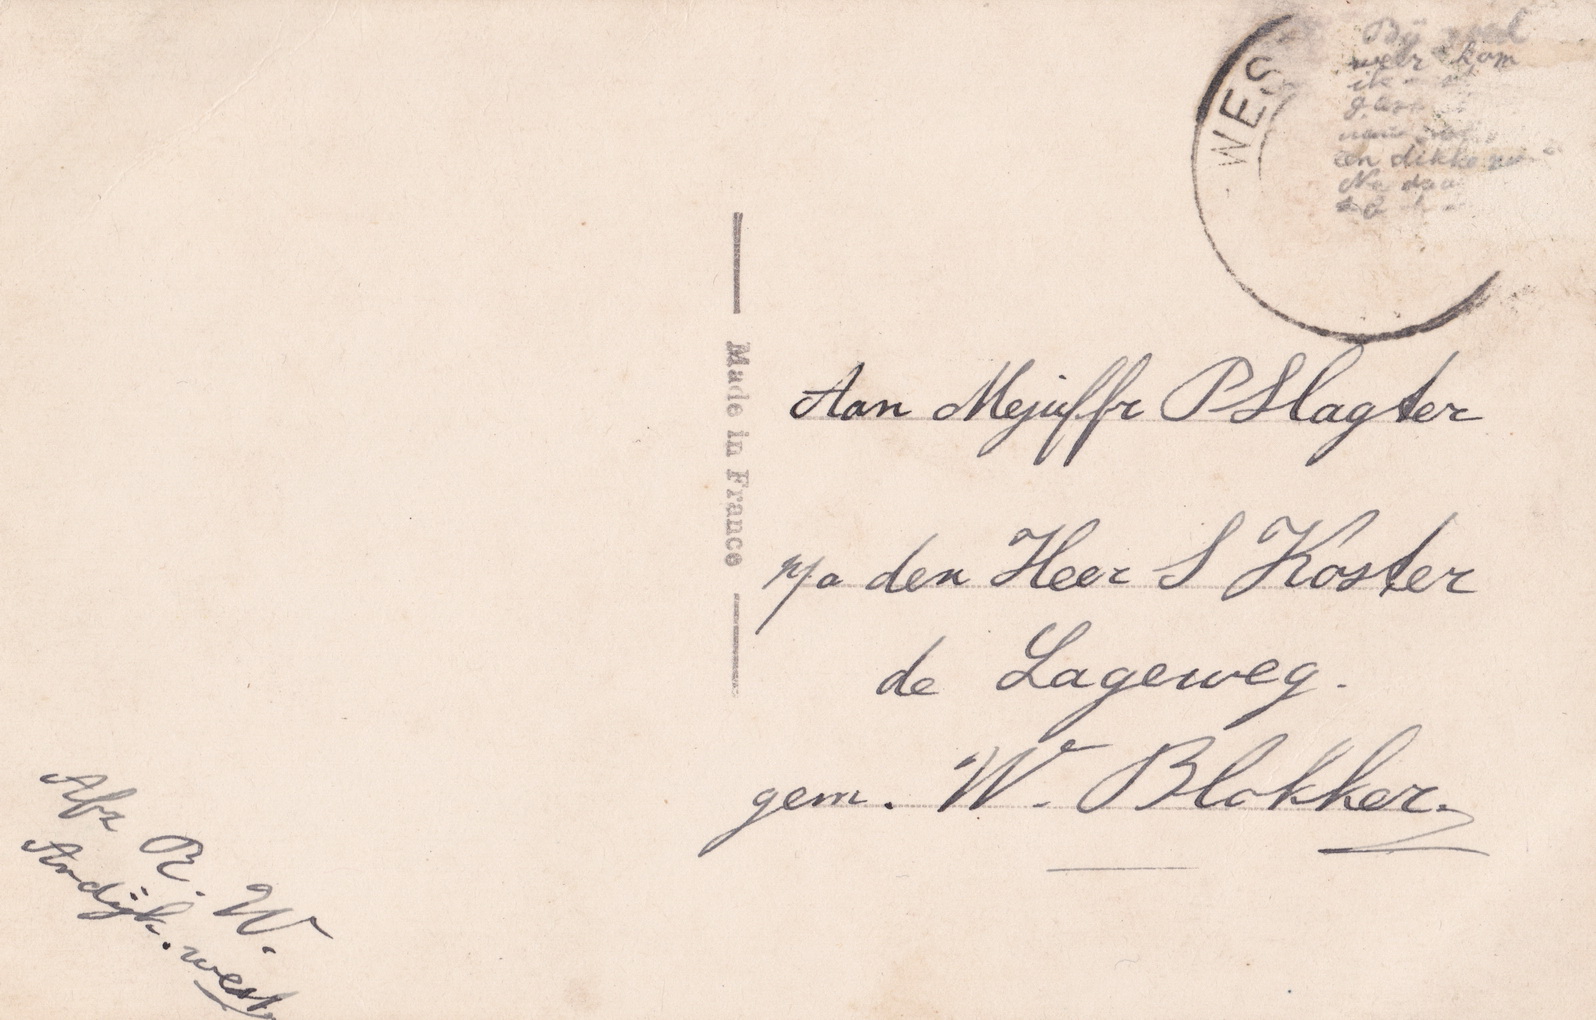 WES
Bij
weer kom
ik
een dikke
Na
Made in France
Aan Mejuffr P Slagter
p/a den Heer S Koster
de Lageweg.
gem. W. Blokker.
Afz R. W.
Andijk. west